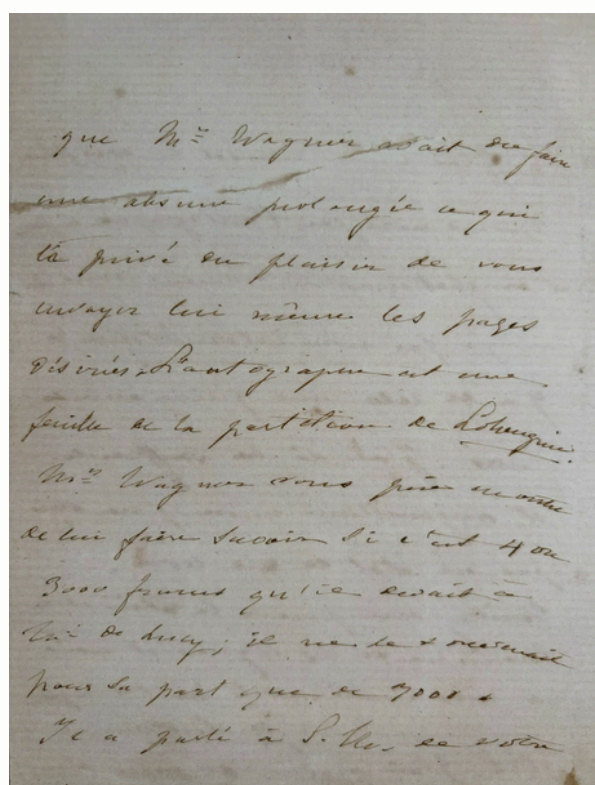 que Mr Wagner avait dû faire
une absence prolongée ce qui
l'a privé du plaisir de vous
envoyer lui même les pages
désirées. L'autographe est une
feuille de la partition de Lohengrin.
Mr Wagner vous prie en outre
de lui faire savoir si c'est 4 ou
3000 francs qu'il devait à
de Lucy; il ne se
pour sa part que de 3000
Il a parlé à de votre